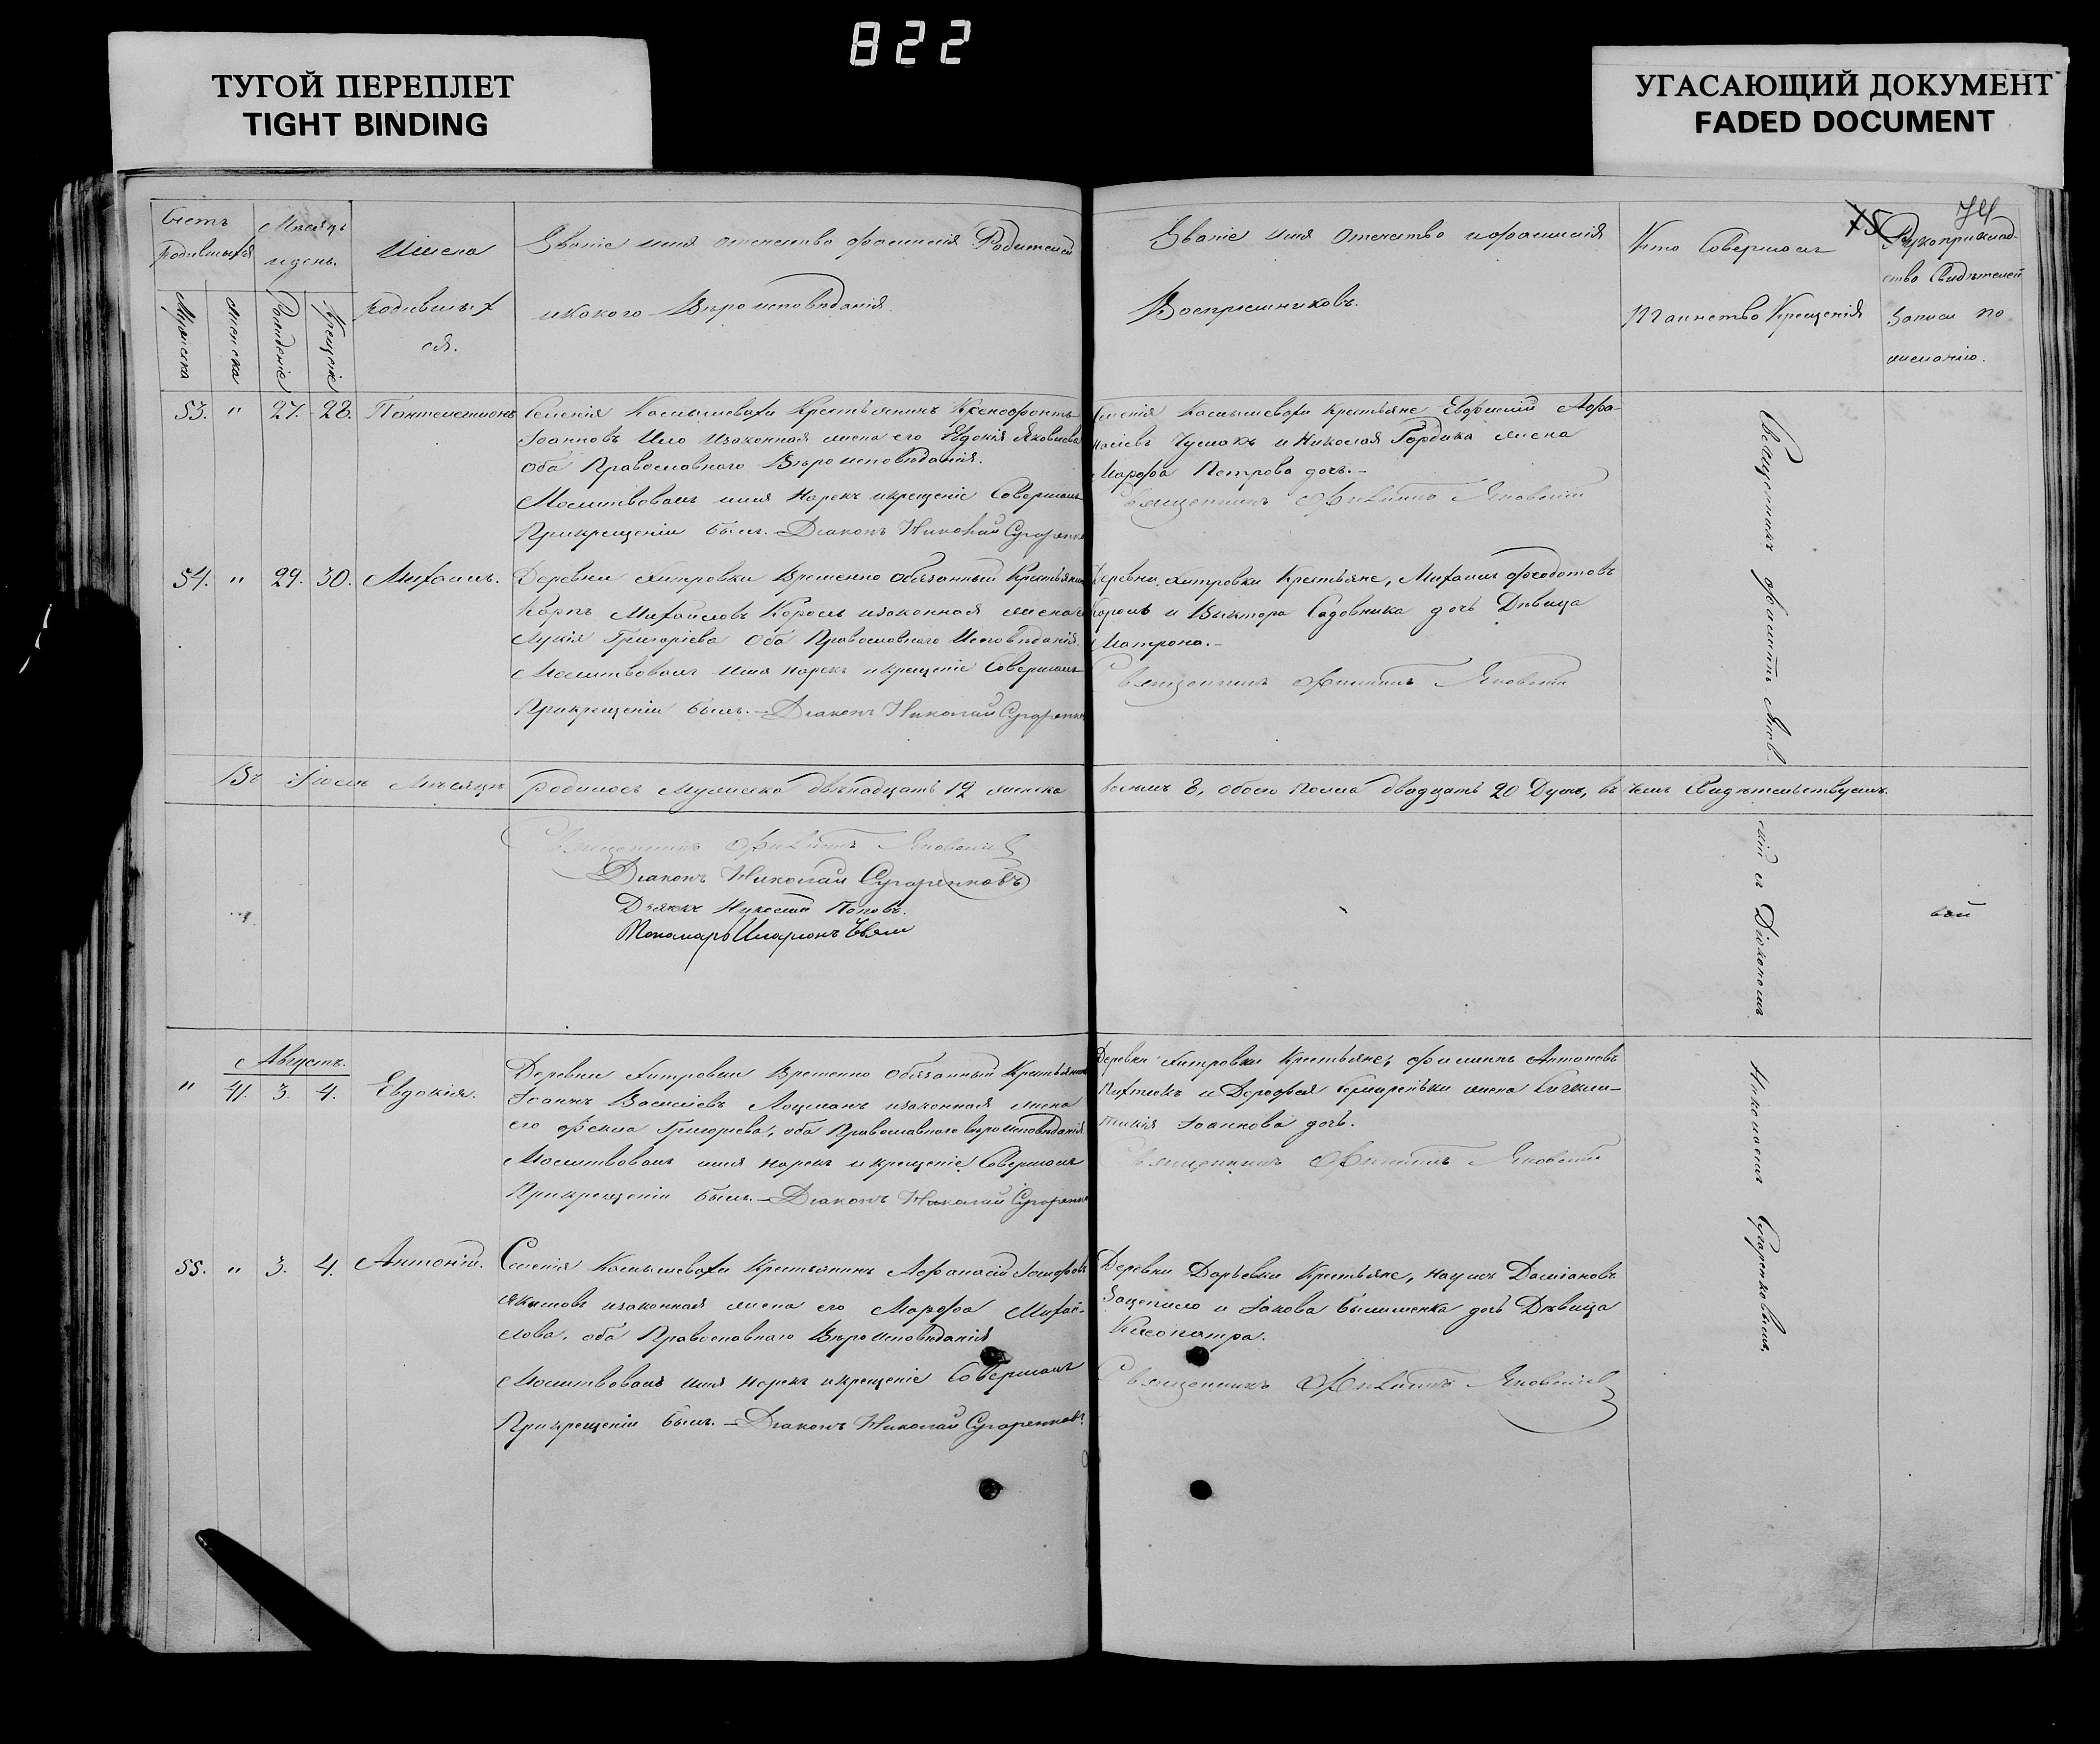 822
ТУГОЙ ПЕРЕПЛЕТ
TIGHT BINDING
УГАСАЮЩИЙ ДОКУМЕНТ
FADED DOCUMENT
75 74
Счетъ родившихся
Мужеска
женска
Мѣсяцъ и день.
Рожденіе
Крещеніе
Имена
родивших
ся.
Званіе имя отечество фамилія Родителей
и какого Вѣроисповѣданія.
Званіе имя Отечество и фамилія
Воспріемниковъ.
Кто Совершалъ
Таинство Крещенія
Рукоприклад-
ство Свидѣтелей
записи по
желанію.
53. " 27. 28. Пантелеимонъ
Селенія Камышевахи Крестьянинъ Ксенофонтъ
Іоанновъ изаконная жена его Евдокія Яковлева
Оба Православнаго Вѣроисповѣданія.
Молитвовалъ имя нарекъ икрещеніе Совершалъ
Прикрещеніи былъ. Діаконъ Николай Сугаренко
Селенія Камышевахи крестьяне Евфимій Афа-
насіевъ Чумакъ и Николая Гордика жена
Марфа Петрова дочь.
Священникъ Филиппъ Яновскій
54. " 29. 30. Михаилъ.
Деревни Хитровки Временно Обязанный Крестьянинъ
Карпъ Михайловъ Король изаконная жена
Лукія Григоріева Оба Православнаго Исповѣданія.
Молитвовалъ имя нарекъ икрещеніе Совершалъ
Прикрещеніи былъ. Діаконъ Николай Сугаренко
Деревни Хитровки Крестьяне, Михаилъ Феодотовъ
Король и Виктора Садовника дочь Дѣвица
Матрона.
Священникъ Филиппъ Яновскій
Въ Іюлѣ Мѣсяцѣ родилось мужеска двѣнадцать 12 женска восемь 8, обоего пола двадцать 20 Душъ, въ чемъ Свидѣтельствуемъ.
Священникъ Филиппъ Яновскій
Діаконъ Николай Сугаренковъ
Дьячекъ Николай Поповъ.
Пономарь Иларіонъ
Августъ.
" 41. 3. 4. Евдокія.
Деревни Хитровки Временно Обязанный Крестьянинъ
Іоаннъ Василіевъ Лоцманъ изаконная жена
его Фекла Григорьева, оба Православнаго вѣроисповѣданія.
Молитвовалъ имя нарекъ и крещеніе Совершалъ
Прикрещеніи былъ. Діаконъ Николай Сугаренко
Деревни Хитровки Крестьяне, Филиппъ Антоновъ
и Дорофея жена
Іоаннова дочь.
Священникъ Филиппъ Яновскій
55. " 3. 4. Антоній.
Селенія Камышевахи Крестьянинъ Афанасій
изаконная жена его Марфа Михай-
лова, оба Православнаго Вѣроисповѣданія
Молитвовалъ имя нарекъ икрещеніе Совершалъ
Прикрещеніи былъ. Діаконъ Николай Сугаренковъ
Деревни Дарьевки Крестьяне, Наумъ Даміановъ
Зацепило и Іакова дочь Дѣвица
Клеопатра.
Священникъ Филиппъ Яновскій
Священникъ Филиппъ Яновскій съ Діакономъ Николаемъ Сугаренковымъ.